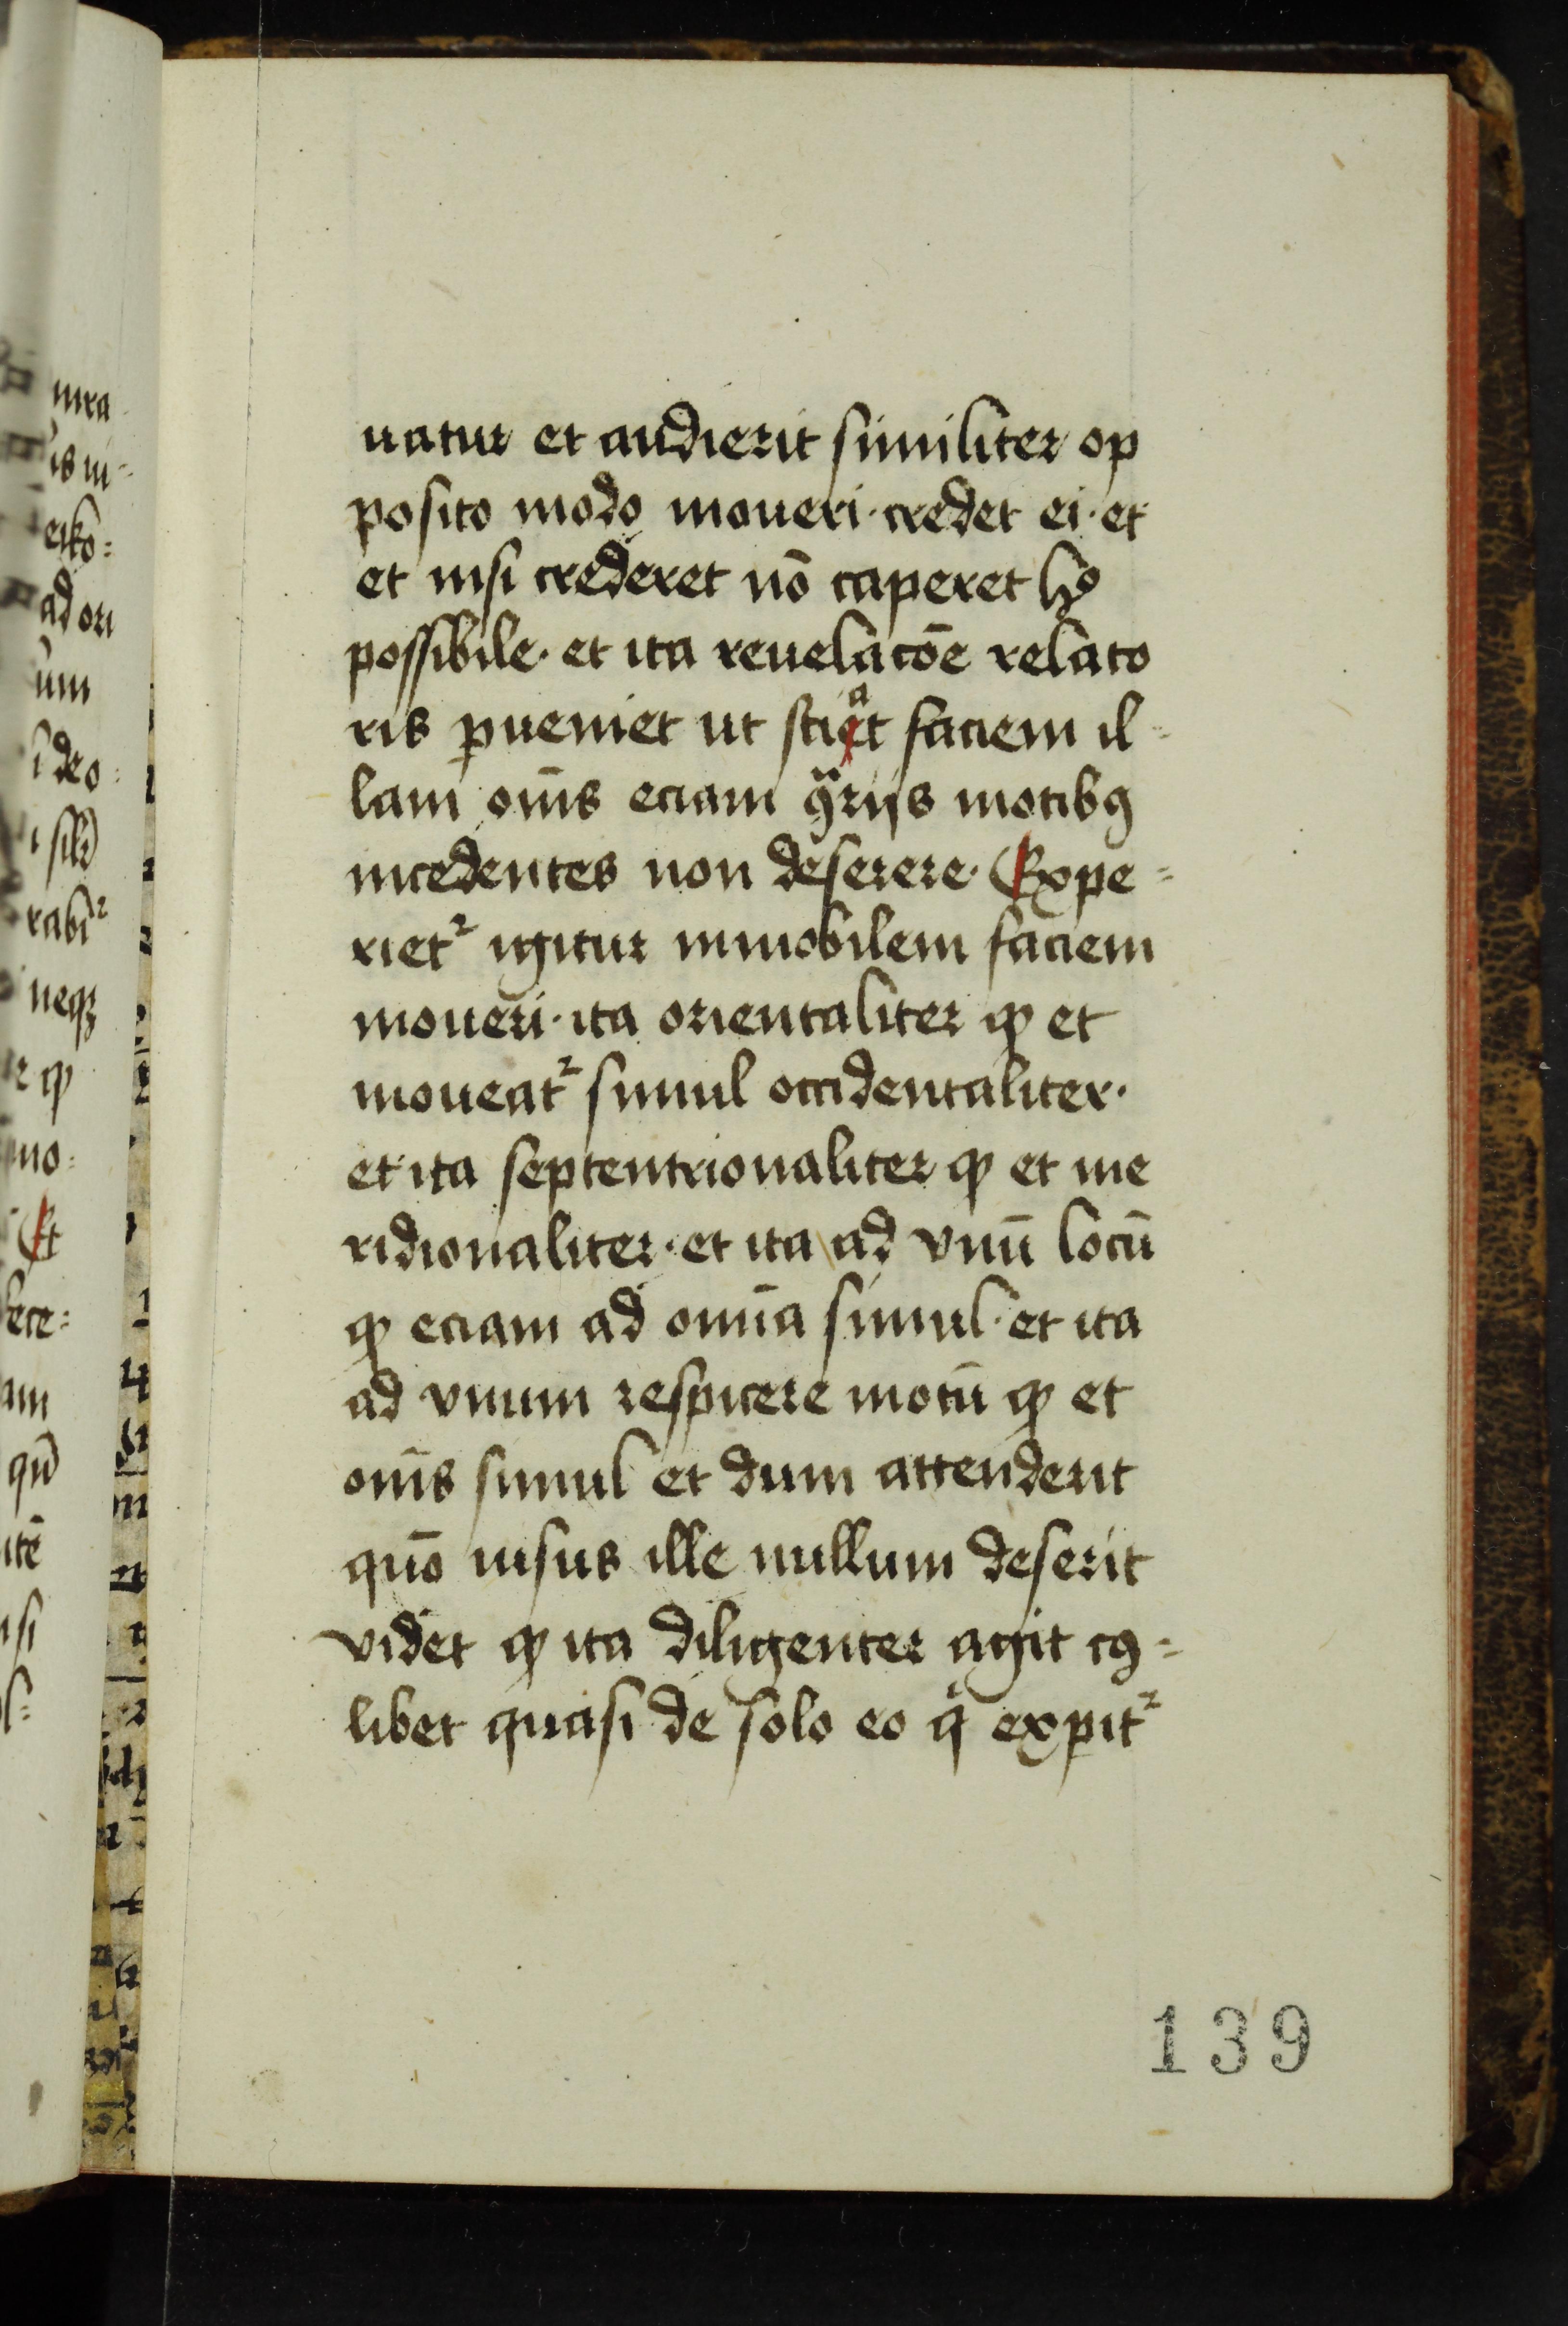 uatur et audierit similiter op
posito modo moueri · credet ei · et
et nisi crederet nō caperet hͦ
possibile · et ita reuelacōe relato
ris ꝑueniet ut sciat faciem il-
lam om̄s eciam ꝯͣrijs motibꝰ
incedentes non deserere · Expe=
riet² igitur immobilem faciem
moueri · ita orientaliter ꝙ et
moueat² simul occidentaliter ·
et ita septentrionaliter ꝙ et me
ridionaliter · et ita ad vnū locū
ꝙ eciam ad omīa simul · et ita
ad vnum respicere motū ꝙ et
om̄s simul et dum attenderit
quō uisus ille nullum deserit
videt ꝙ ita diligenter agit cꝰ=
libet quasi de solo eo qͥ exꝑit²
139